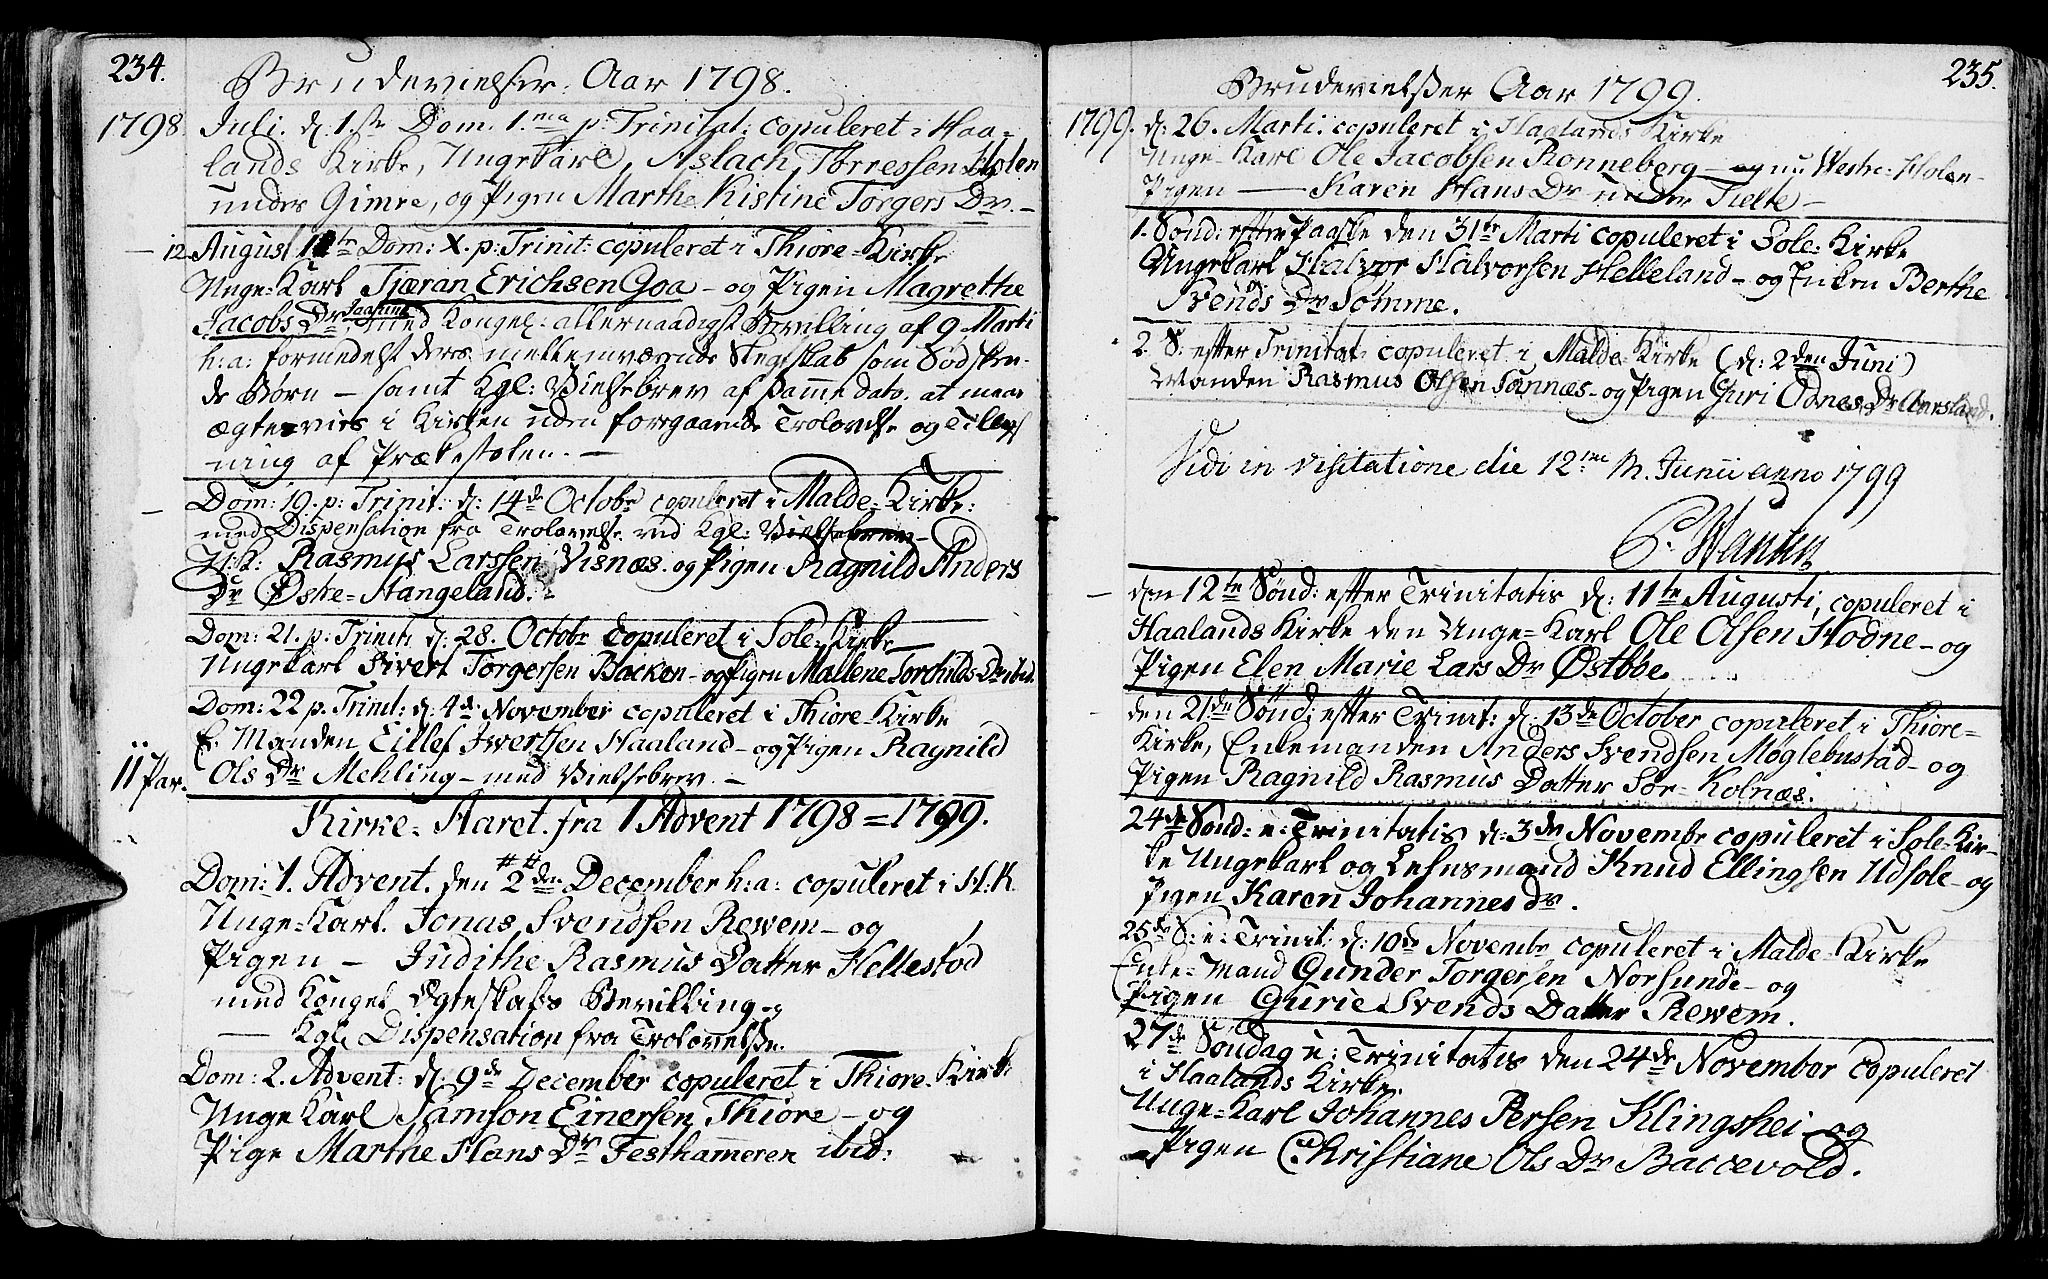 234.
Brudevielser. Aar 1798.
1798. Juli. d: 1.ste Dom. 1.ma p: Trinitat: copuleret i Haa-
lands Kirke, Ungekarl, Aslach Tørressen Holen
under Gimre, og Pigen Marthe Kistine Torgers Dr. -
- 12 August Dom: X. p: Trinit: copuleret i Thiore-Kirke
Unge-Karl Tjæran Erichsen Goa - og Pigen Magrethe
Jacobs Dr Jaasund med Kongel: allernaadigst Bevilling af 9. Marti
h:a: formedelst deres mellemværende Slegtskab som Sødsken-
de Børn - samt Kgl: Vielsebrev af samme dato. at maae
ægtevies i Kirken uden foregaaende Trolovelse og Tillys
ning af Prækestolen. -
- Dom: 19. p: Trinit: d: 14de Octobr copuleret i Malde-Kirke:
med Dispensation fra Trolovelse ved Kgl: Vielsebrev -
U:K: Rasmus Larssen Visnæs. og Pigen Ragnild Anders
Dr Østre-Stangeland. -
Dom: 21. p: Trinit: d: 28. Octobr copuleret i Sole-Kirke -
Ungekarl Sivert Torgersen Backen - og Pigen Mallene Torchilds-Dr ibid.
Dom: 22 p. Trinit: d: 4de November copuleret i Thiore-Kirke
E. Manden Eillef Ivertsen Haaland - og Pigen Ragnild
11 Par. Ols Dr Mehling - med Vielsebrev. -
Kirke-Aaret. fra 1 Advent 1798 = 1799.
Dom: 1. Advent. den 2den December h:a: copuleret i H:K.
Unge-Karl. Jonas Svendsen Rewem - og
Pigen - Judithe Rasmus Datter Hellestød
med Kongel Ægteskabs Bevilling - og
- Kgl. Dispensation fra Trolovelse.
Dom: 2. Advent: d: 9de December copuleret i Thiore-Kirke
Unge Karl Samson Einersen Thiore - og
Pige Marthe Hans Dr Testhammeren ibid:
235.
Brudevielser Aar 1799.
1799. d: 26. Marti: copuleret i Haalands Kirke
Unge-Karl Ole Jacobsen Ronneberg - og nu Westre-Holen -
Pigen - Karen Hans Dr under Tielte -
1. Sønd: efter Paaske den 31te Marti copuleret i Sole-Kirke
Ungekarl Halvor Halvorsen Helleland - og Enken Berthe
Svends Dr Sømme.
2. S. efter Trinitat: copuleret i Malde-Kirke (d: 2den Juni)
Manden Rasmus Olsen Sannæs - og Pigen Guri Odnes Dr Aarsland.
Vidi in visitatione die 12me M. Junii anno 1799
- den 12te Sønd: efter Trinitatis d: 11te Augusti, copuleret i
Haalands Kirke den Unge-Karl Ole Olsen Hodne - og
Pigen Elen Marie Lars Dr Østbøe.
- den 21de Sønd: efter Trinit: d: 13de October copuleret i Thiore-
Kirke, Enkemanden Anders Svendsen Møglebustad - og
Pigen Ragnild Rasmus Datter Sør-Kolnæs.
24de Sønd: e: Trinitatis d: 3de Novembr copuleret i Sole-Kir-
ke Ungekarl og Lehnsmand Knud Ellingsen Udsole - og
Pigen Karen Johannes dr.
25de S: e: Trinit: d: 10de Novembr copuleret i Malde-Kirke
Enke-Mand Gunder Torgersen Norsunde - og
Pigen Gurie Svends Datter Rewem.
27de Søndag e: Trinitatis den 24de November copuleret
i Haalands Kirke
Unge-Karl Johannes Persen Klingshei - og
Pigen Christiane Ols Dr Baccevold.